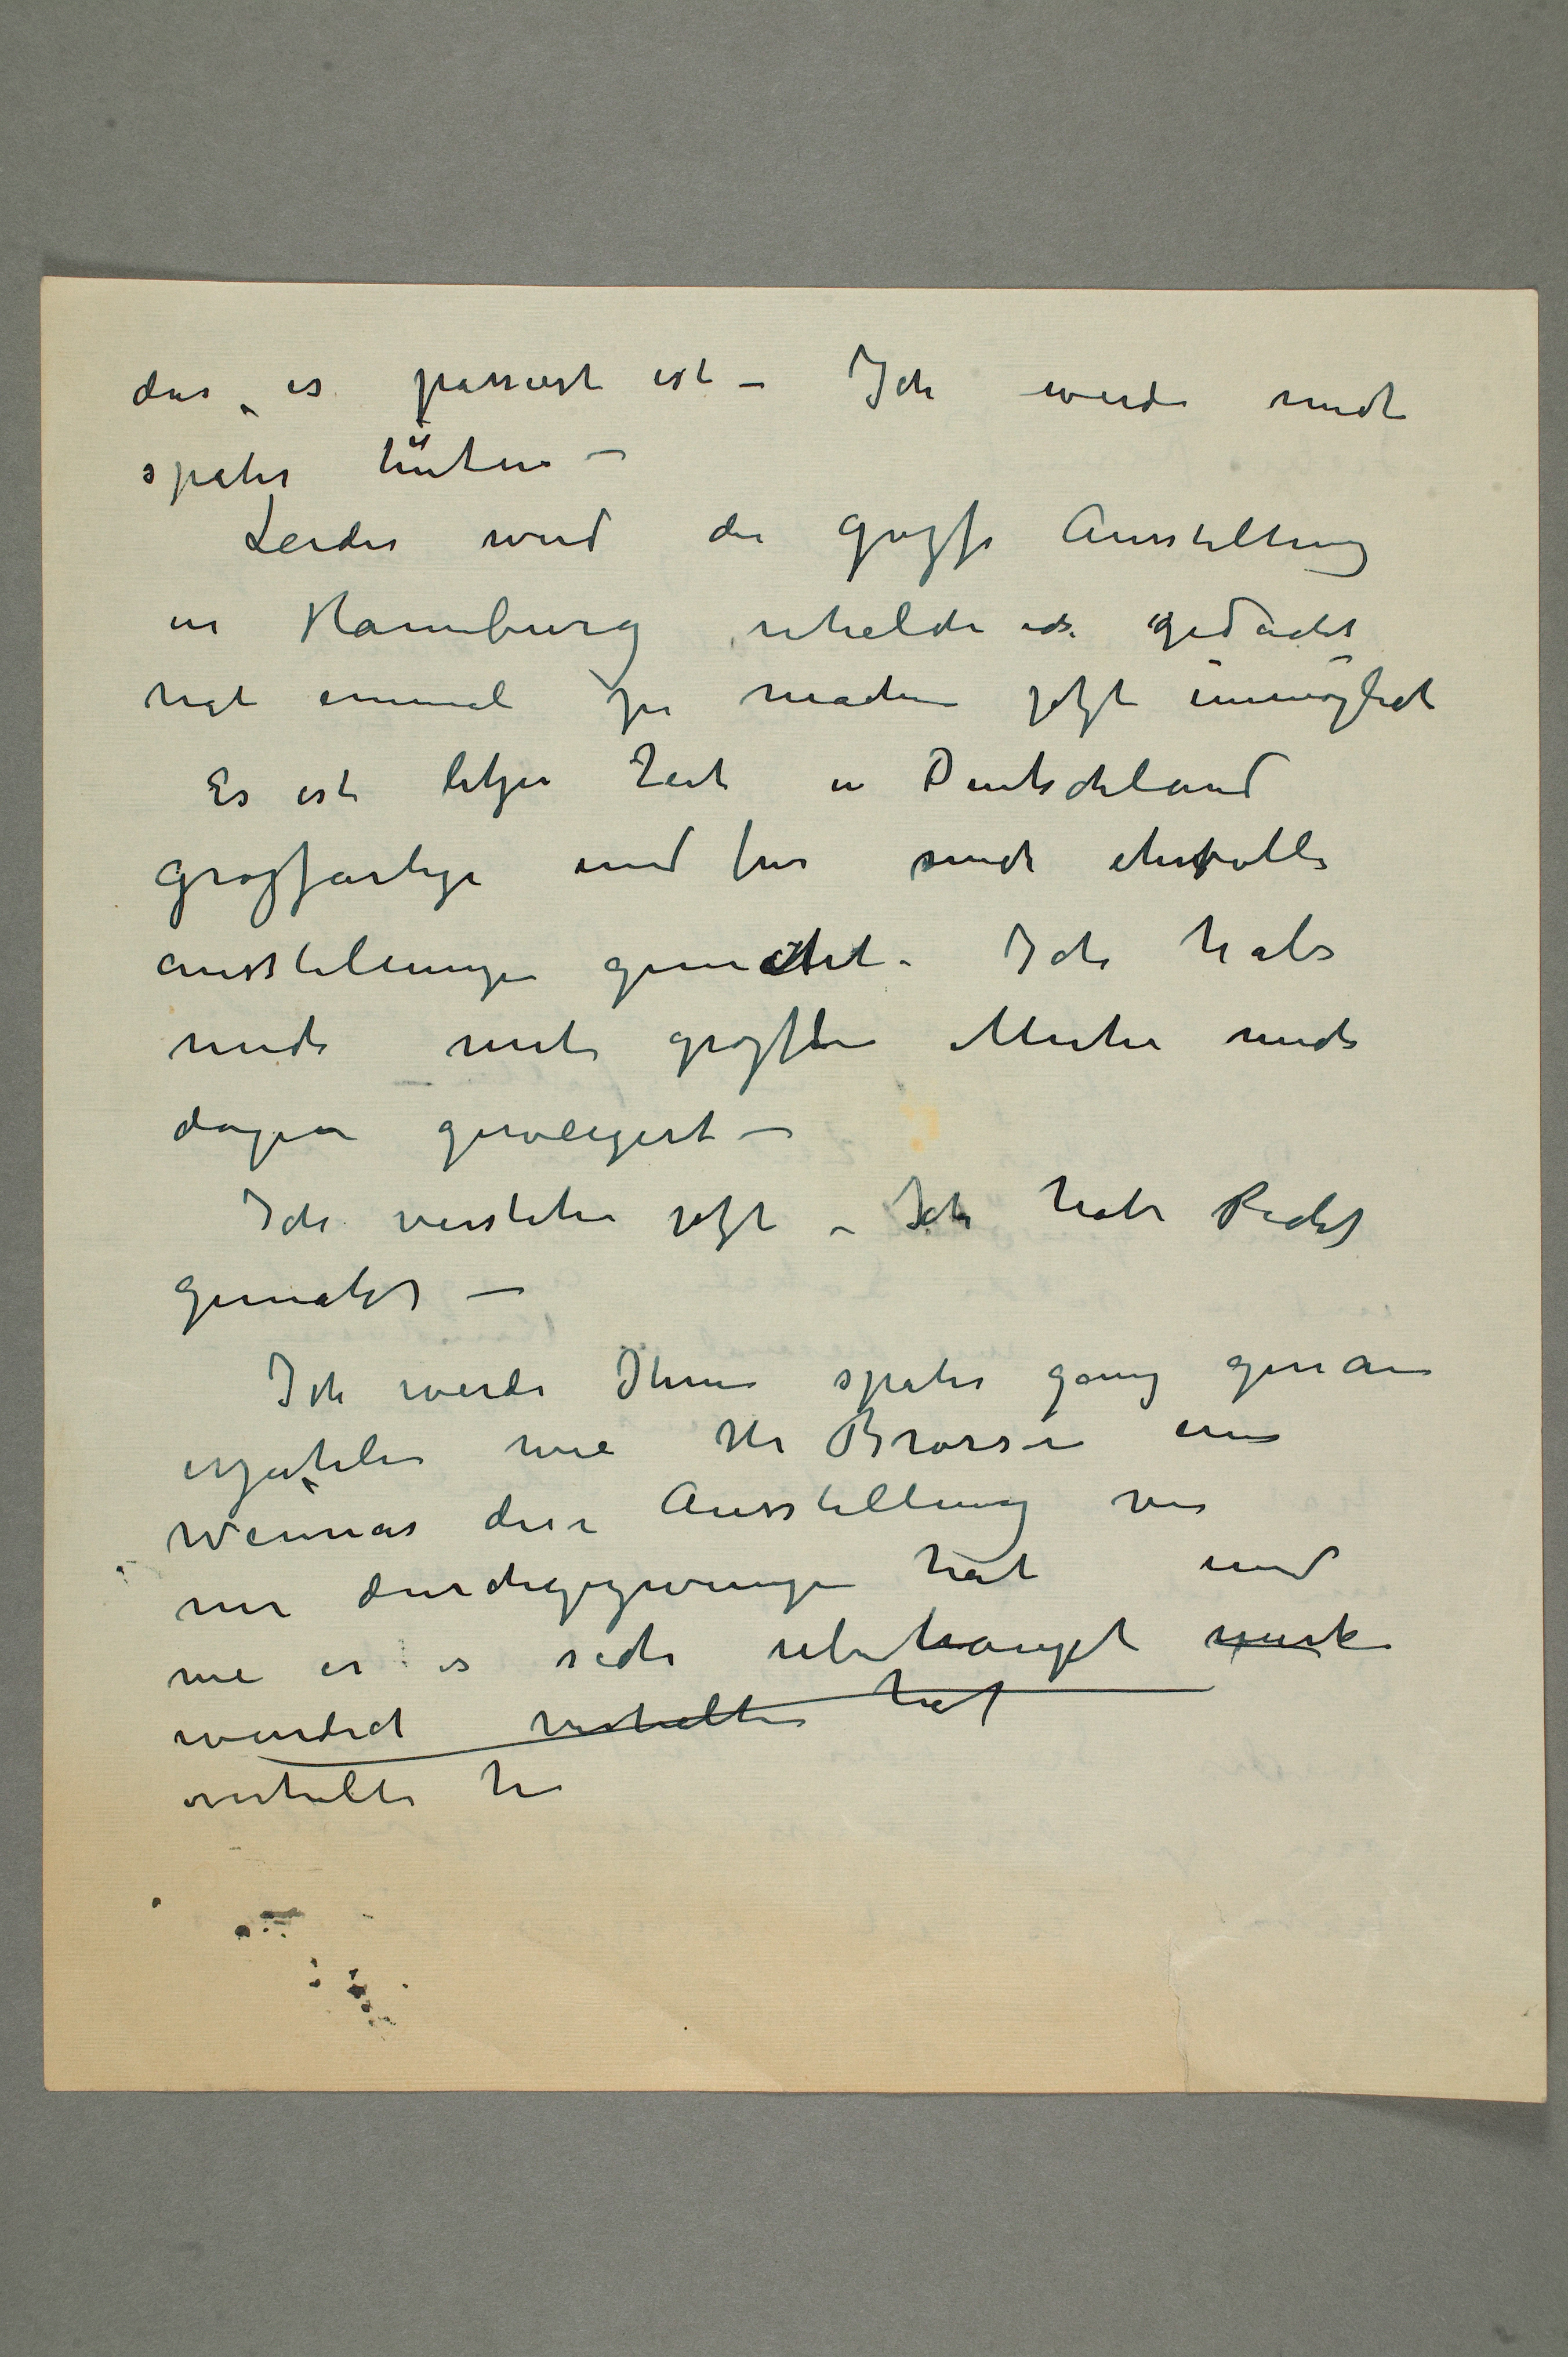 das es passiert ist – Ich werde mich
später hüten –
Leider wird die grosse Ausstellung
in Hamburg welche ich gedacht
hat einmal zu machen jetzt unmöglich
Es ist letzte Zeit in Deutschland
grossartige und für mich ehrvolle
ausstellungen gemacht. Ich habe
mich mit grösster Muhe mich
dagen geweigert –
Ich verstehe jetzt – Ich habe Recht
gemacht –
Ich werde Ihnen später ganz genau
erzahlen wie Hr Brorsen in
Weimar diese Ausstellung von
mir durchgezwungen hat und
wie er es sich uberhaupt merk
wurdich verhalten hat
verhalten h